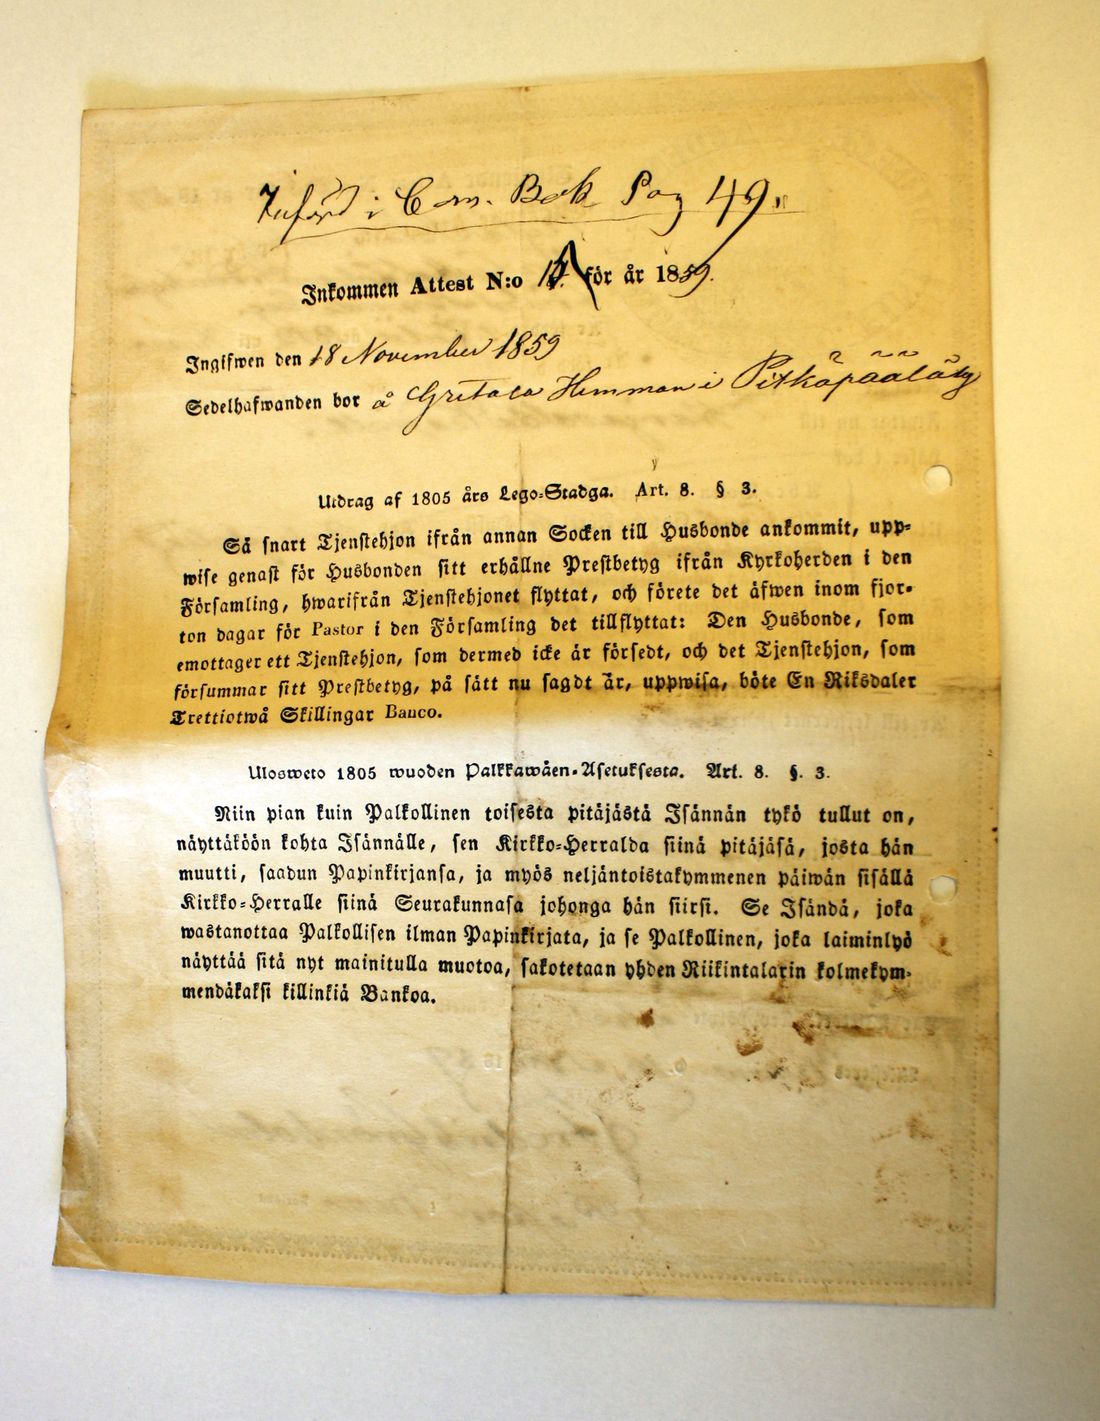 Införd i Com. Bok Pag 49.
Inkommen Attest N:o för år 1859.
Ingifwen den 18 November 1859
Sedelhafwanden bor å Gritala Hemman i Pitkäpäälä
Utdrag af 1805 års Lego-Stadga. Art. 8. § 3.
Så snart Tjenstehjon ifrån annan Socken till Husbonde ankommit, upp-
wise genast för Husbonden sitt erhållne Prestbetyg ifrån Kyrkoherden i den
Församling, hwarifrån Tjenstehjonet flyttat, och förete det äfwen inom fjor-
ton dagar för Pastor i den Församling det tillflyttat: Den Husbonde, som
emottager ett Tjenstehjon, som dermed icke är försedt, och det Tjenstehjon, som
försummar sitt Prestbetyg, på sätt nu sagdt är, uppwisa, böte En Riksdaler
Trettiotwå Skillingar Banco.
Ulosweto 1805 wuoden Palkkawäen-Asetuksesta. Art. 8. §. 3.
Niin pian kuin Palkollinen toisesta pitäjästä Isännän tykö tullut on,
näyttäköön kohta Isännälle, sen Kirkko-Herralda siinä pitäjäsä, josta hän
muutti, saadun Papinkirjansa, ja myös neljäntoistakymmenen päiwän sisällä
Kirkko-Herralle siinä Seurakunnasa johonga hän siirsi. Se Isändä, joka
wastanottaa Palkollisen ilman Papinkirjata, ja se Palkollinen, joka laiminlyö
näyttää sitä nyt mainitulla muotoa, sakotetaan yhden Riikintalarin kolmekym-
mendäkaksi killinkiä Bankoa.